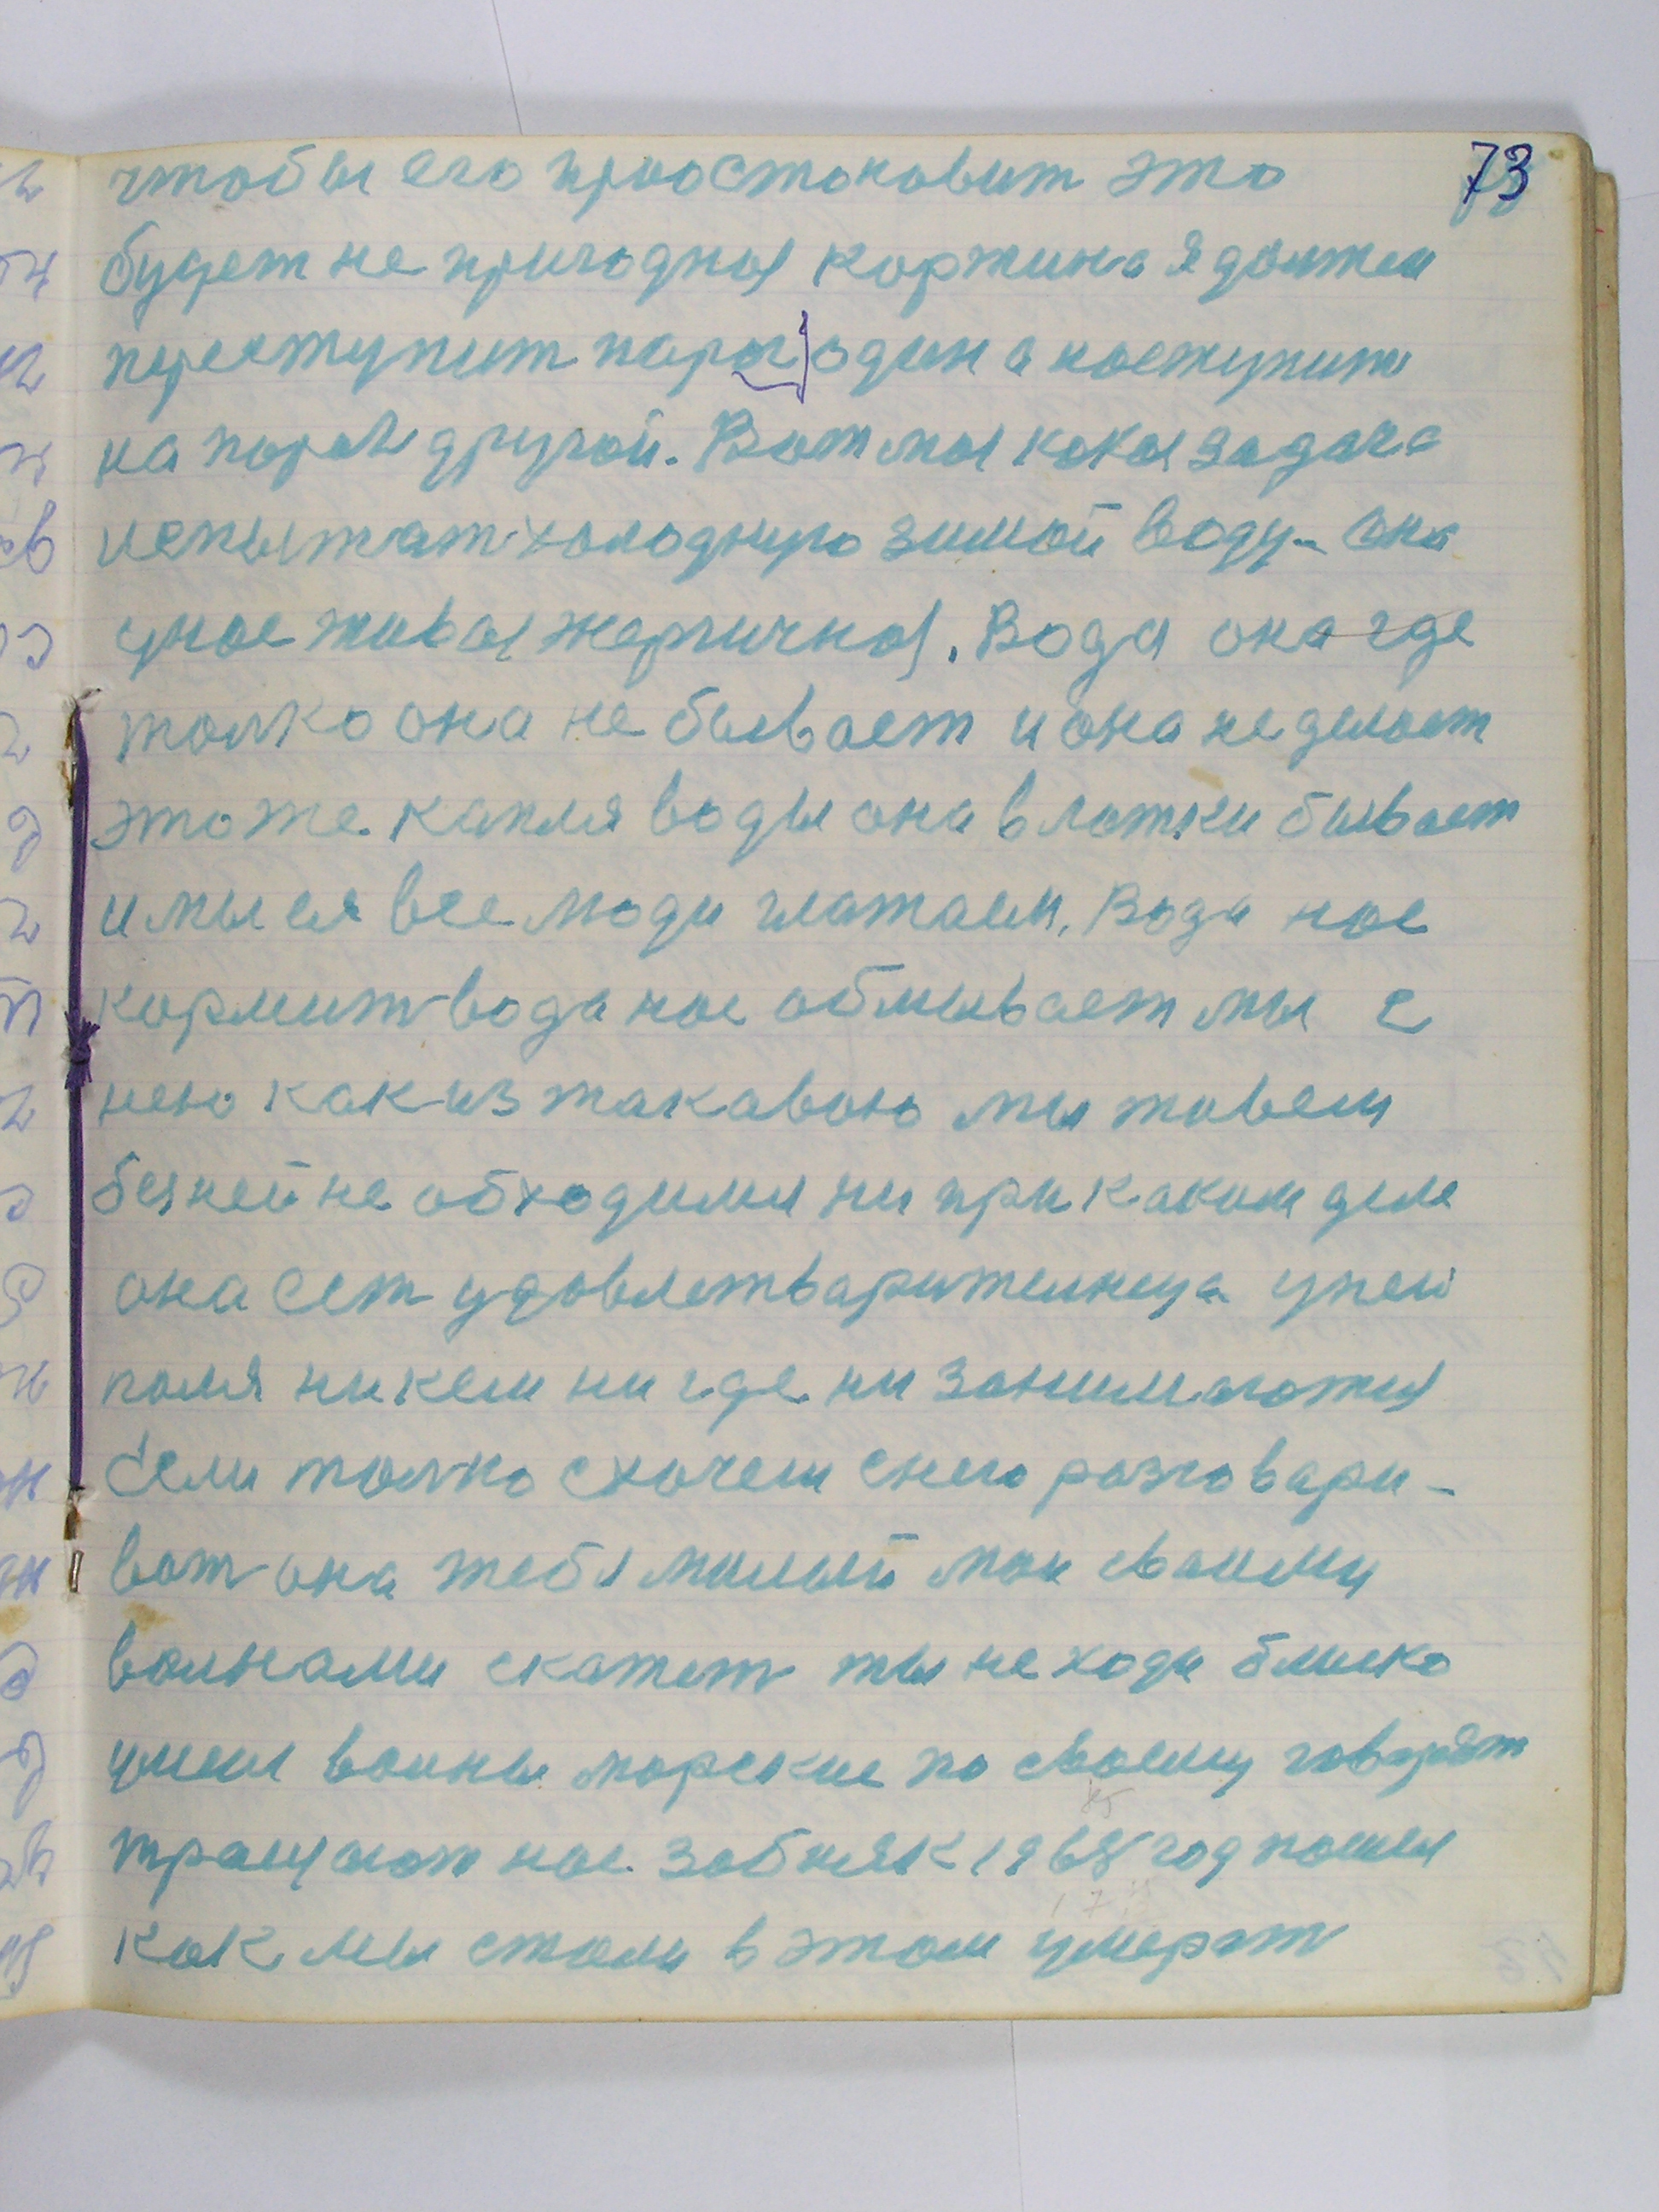 73
чтобы его приостоновит это
будет не пригодныя коржина я должен
переступит парог один а наступити
на порог другой. Вот моя какая задача
испытат холодную зимой воду она
унас живая енергичная. Вода она где
толко она не бывает и она не делает
это же капля воды она в ложки бывает
и мы ея все люди глатаем, Вода нас
кормит вода нас обмывает мы с
нею как из такавою мы живем
без ней не обходимя ни при каком деле
она ест удовлетварителница у ней
поля никем ни где ни занимаются
Если толко схочеш снею разговари-
ват она тебя милый мои своими
волнами скажет ты не ходи блиско
умея волны морские по своему говорят
тращают нас забияк 1968 год пошел
как мы стали в этом умерат